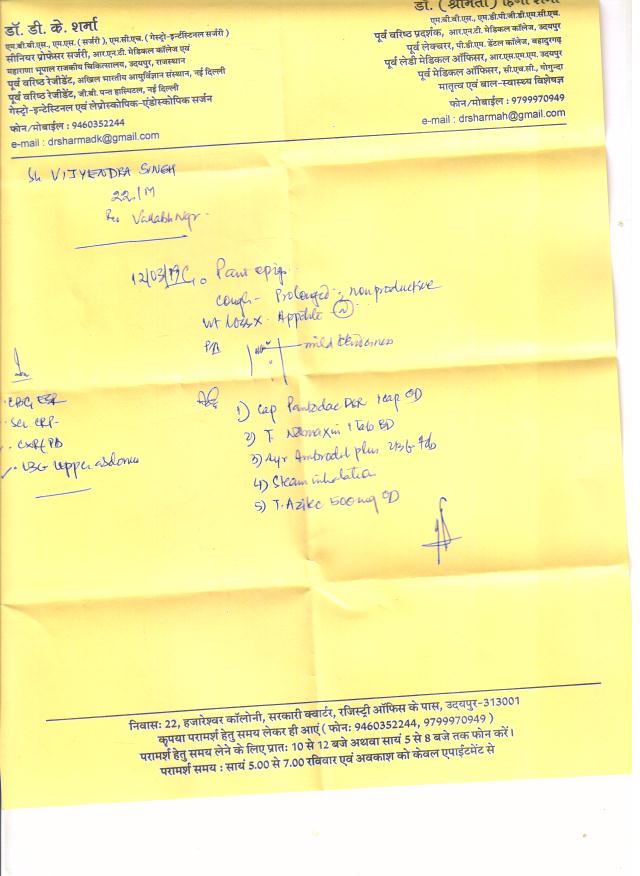 डॉ. डी. के. शर्मा
एम.बी.बी.एस., एम.एस. (सर्जरी), एम.सी.एच. (गेस्ट्रो-इन्टेस्टिनल सर्जरी)
सीनियर प्रोफेसर सर्जरी, आर.एन.टी. मेडिकल कॉलेज एवं
महाराणा भूपाल राजकीय चिकित्सालय, उदयपुर, राजस्थान
पूर्व वरिष्ठ रेजीडेंट, अखिल भारतीय आयुर्विज्ञान संस्थान, नई दिल्ली
पूर्व वरिष्ठ रेजीडेंट, जी.बी. पन्त हास्पिटल, नई दिल्ली
गेस्ट्रो-इन्टेस्टिनल एवं लेप्रोस्कोपिक-एंडोस्कोपिक सर्जन
फोन/मोबाईल : 9460352244
e-mail : drsharmadk@gmail.com
डॉ. (श्रीमती) शर्मा
एम.बी.बी.एस., एम.डी.पी.जी.डी.एम.सी.एच.
पूर्व वरिष्ठ प्रदर्शक, आर.एन.टी. मेडिकल कॉलेज, उदयपुर
पूर्व लेक्चरर, पी.डी.एम. डेंटल कॉलेज, बहादुरगढ़
पूर्व लेडी मेडिकल ऑफिसर, आर.एस.एम.एम. उदयपुर
पूर्व मेडिकल ऑफिसर, सी.एच.सी., गोगुन्दा
मातृत्व एवं बाल-स्वास्थ्य विशेषज्ञ
फोन/मोबाईल : 9799970949
e-mail : drsharmah@gmail.com
Sh VIJYENDRA SINGH
22/M
Vallabh Ngr.
12/03/19 C/o Pain epig.
cough - Prolonged, nonproductive
Wt loss x. Appetite (N)
P/A mild tenderness
CBC ESR
CRP
CxR PA
USG upper abdomen
1) Cap Pantodac DSR 1 cap OD
2) T. 1 tab BD
3) Syr Ambrodil plus
4) Steam inhalation
5) T. 500 mg OD
निवास: 22, हजारेश्वर कॉलोनी, सरकारी क्वार्टर, रजिस्ट्री ऑफिस के पास, उदयपुर-313001
कृपया परामर्श हेतु समय लेकर ही आएं ( फोन: 9460352244, 9799970949 )
परामर्श हेतु समय लेने के लिए प्रात: 10 से 12 बजे अथवा सायं 5 से 8 बजे तक फोन करें।
परामर्श समय : सायं 5.00 से 7.00 रविवार एवं अवकाश को केवल एपाईटमेंट से